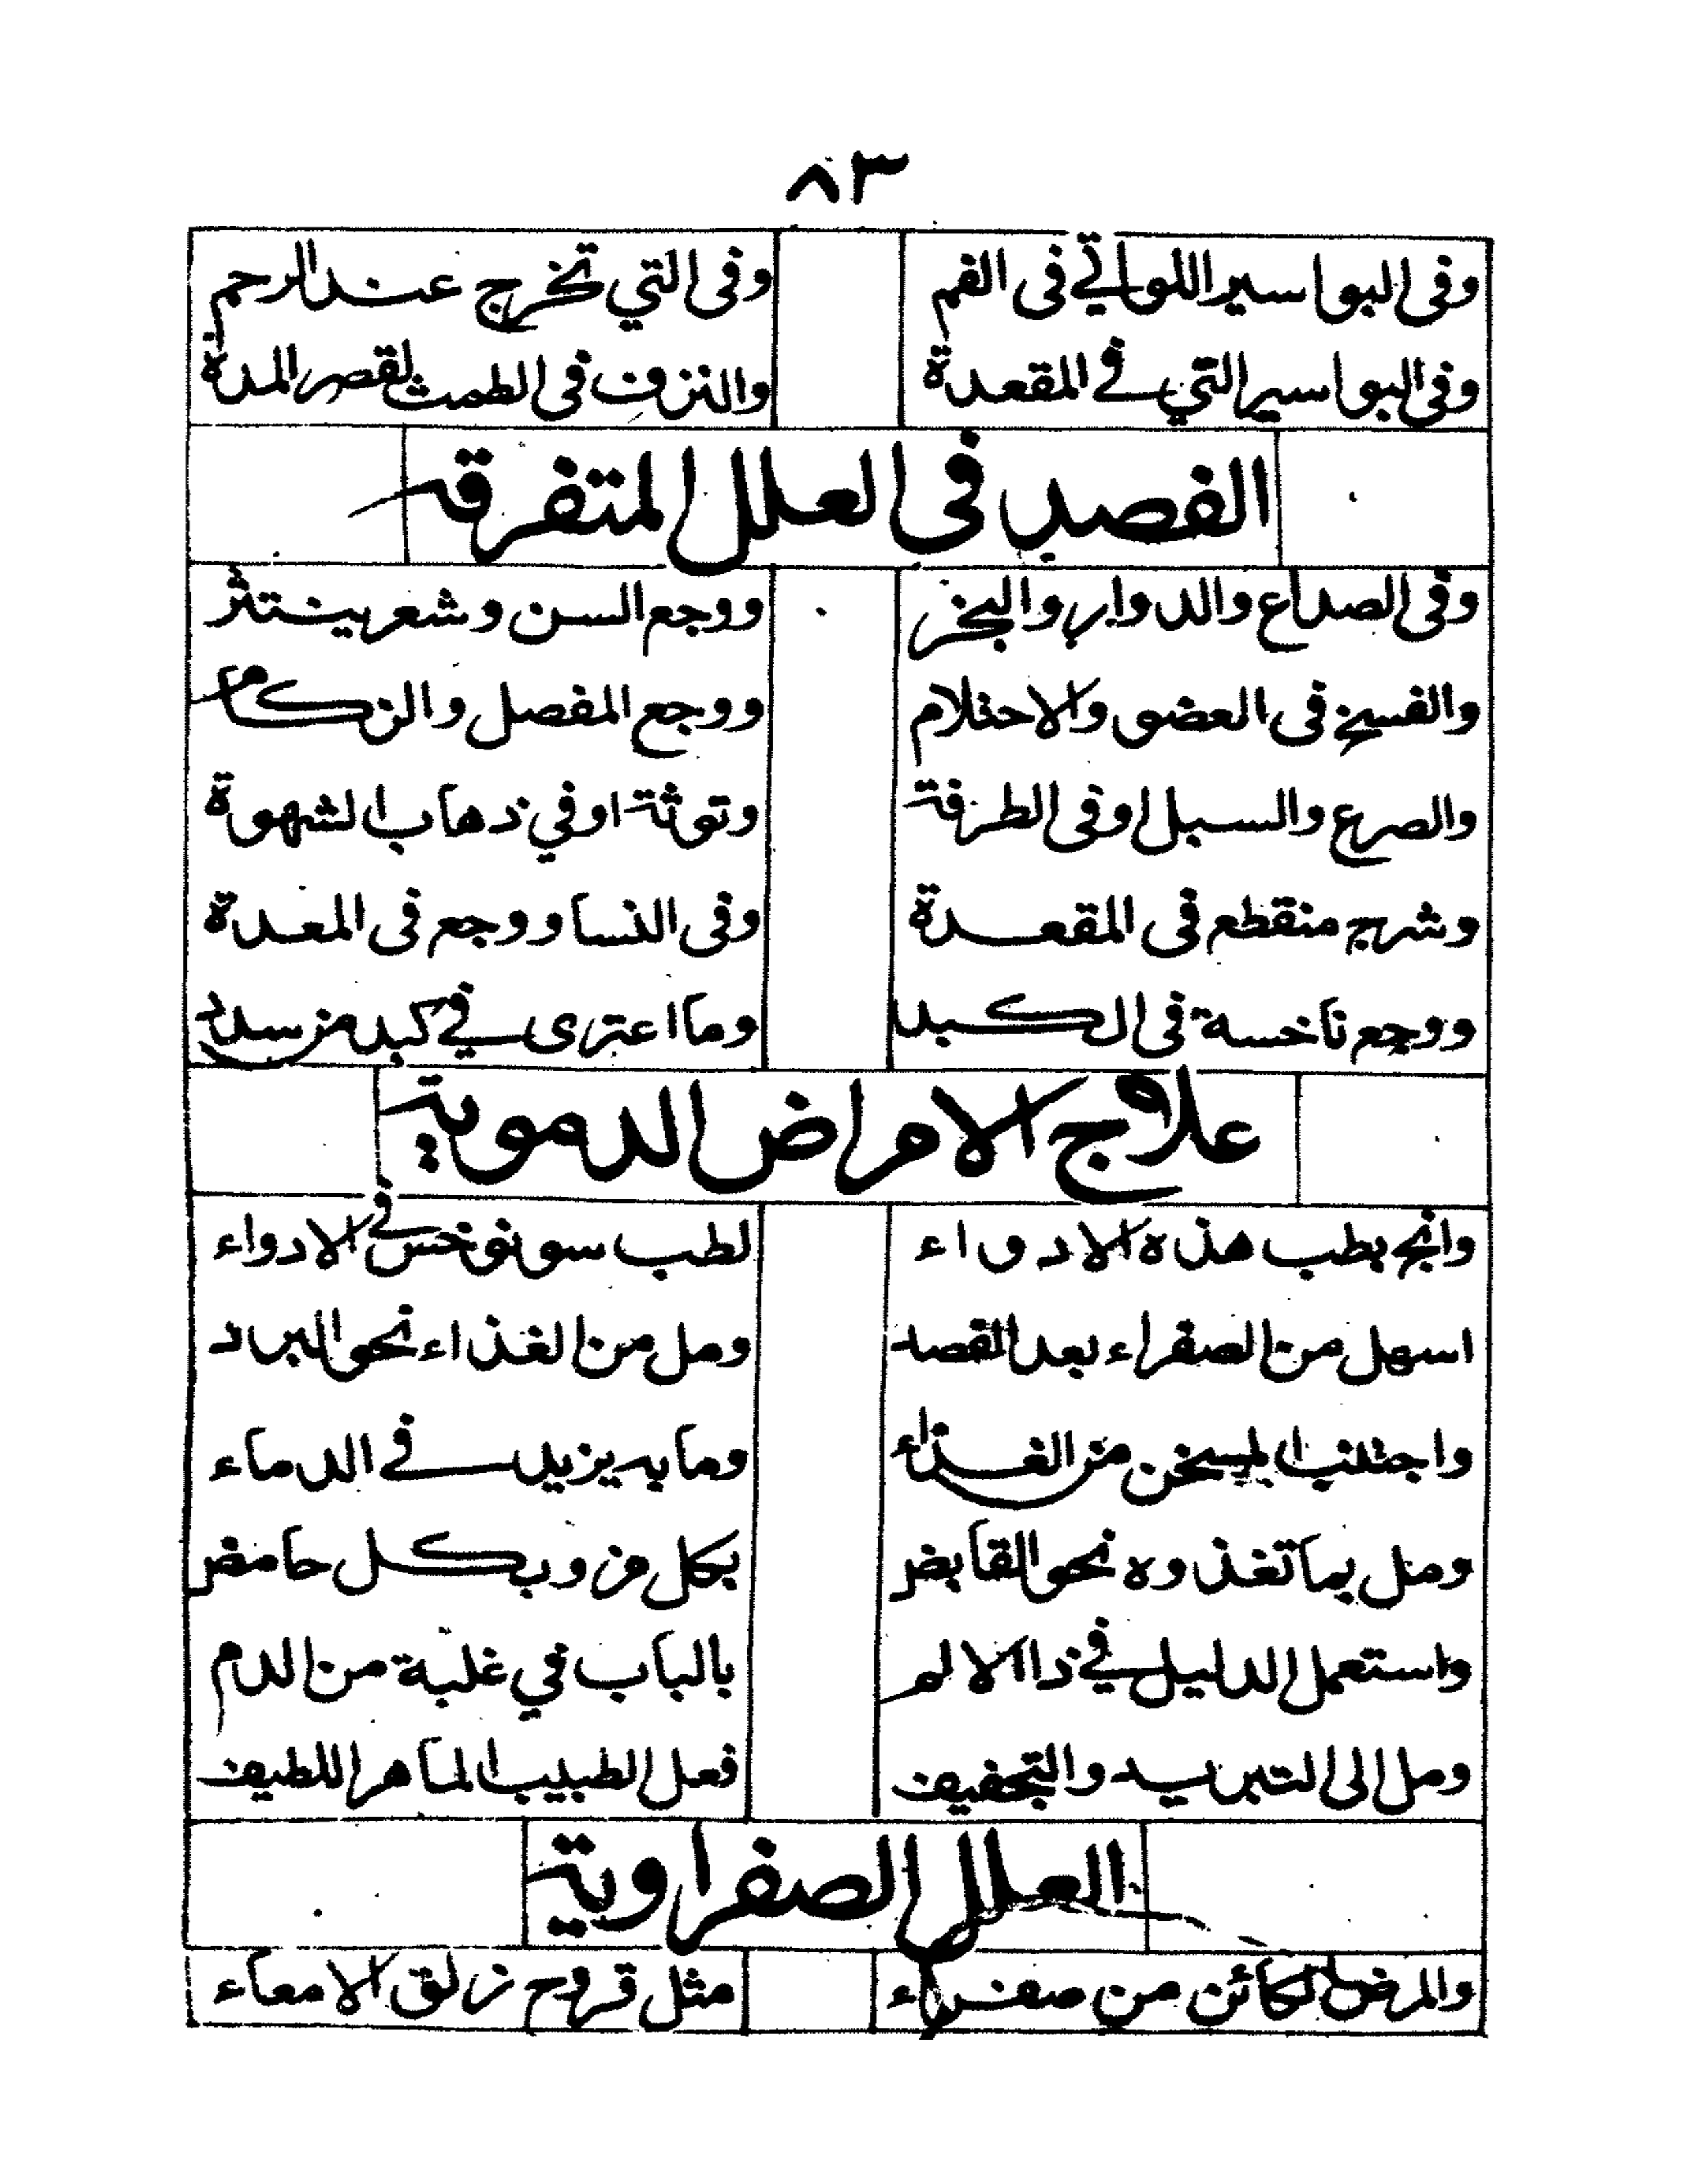 ٨٣
وفى البواسير اللواتي فى الفم وفى التي تخرج عند الرحم
وفى البواسير التي في المقعدة والنزف فى الطمث لقصر المدة
الفصد فى العلل المتفرقة
وفى الصداع والدوار والبخر ووجع السن وشعر ينتثر
والفسخ فى العضو والاحتلام ووجع المفصل والزكام
والصرع والسبل اوفى الطرفة وتوثة اوفي ذهاب الشهوة
وشرج منقطع فى المقعدة وفى النسا ووجع فى المعدة
ووجع ناخسة فى الكبد وما اعترى في كبد من سدد
علاج الامراض الدموية
وانح بطب هذه الادواء لطب سونوخس في الادواء
اسهل من الصفراء بعد الفصد ومل من الغذاء نحو البرد
واجتنب المسخن من الغذاء وما به يزيد في الدماء
ومل بما تغذوه نحو القابض بكل مز وبكل حامض
واستعمل الدليل في ذا الالم بالباب في غلبة من الدم
ومل الى التبريد والتجفيف فعل الطبيب الماهر اللطيف
العلل الصفراوية
والمرض الكائن من صفراء مثل قروح زلق الامعاء